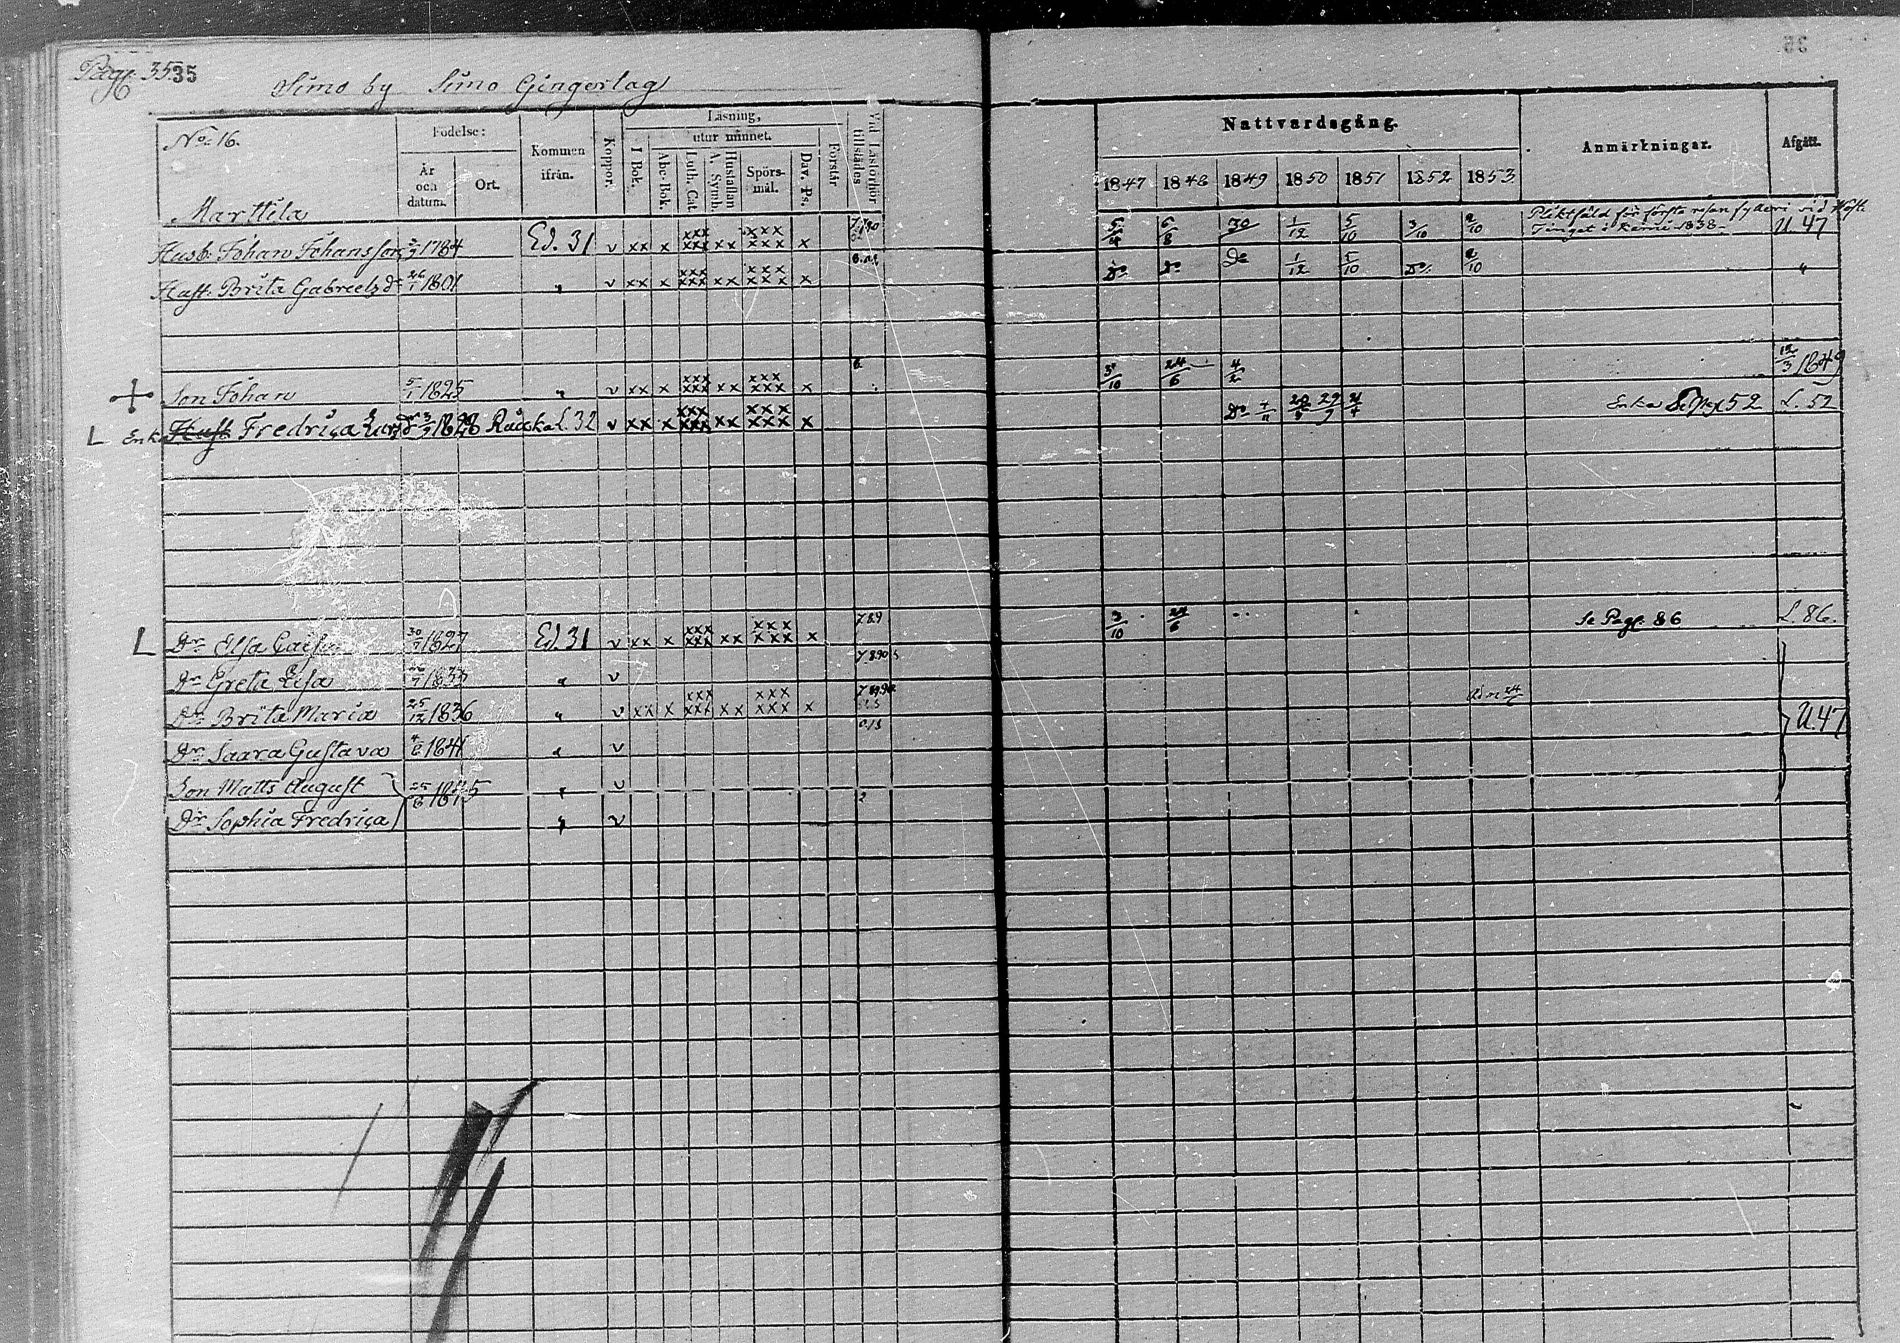 Pag. 35 35
Simo by Simo Gingerlag
No 16.
Födelse:
År och datum.
Ort.
Kommen ifrån.
Koppor.
Läsning,
utur minnet.
I Bok.
Abc-Bok.
Luth. Cat.
A. Symb.
Hustaflan
Spörs-mål.
Dav. Ps.
Förstår
Vid Läsförhör tillstädes
Nattvardsgång.
1847 1848 1849 1850 1851 1852 1853
Anmärkningar.
Afgått.
Marttila
Husb. Johan Johansson 1784 Ed. 31 v xx x xxx xxx xx xxx xxx x 5/4 6/8 30 1/12 5/10 3/10 2/10 U 47
Pliktfäld för första resan fylleri vid Höst
Tinget i Kemi 1838.
Hust. Brita Gabrielsdr 26/1 1801 " v xx x xxx xxx xx xxx xxx x Do Do Do 1/12 5/10 Do 2/10 "
Son Johan 5/1 1825 " v xx x xxx xxx xx xxx xxx x 3/10 24/6 4/2 12/3 1849
L Enka Hust Fredrica 1828 L. 32 v xx x xxx xxx xx xxx xxx x Do Enka Se Pag 52 L. 52
L Dr Elsa Caisa 30/7 1827 Ed. 31 v xx x xxx xxx xx xxx xxx x 789 3/10 24/6 Se Pag. 86 L. 86.
Dr Greta Lisa 1833 " v
Dr Brita Maria 25/12 1836 " v xx x xxx xxx xx xxx xxx x U. 47
Dr Saara Gustava 4/6 1841 " v
Son Matts August 25/6 1845 " v
Dr Sophia Fredrica " v